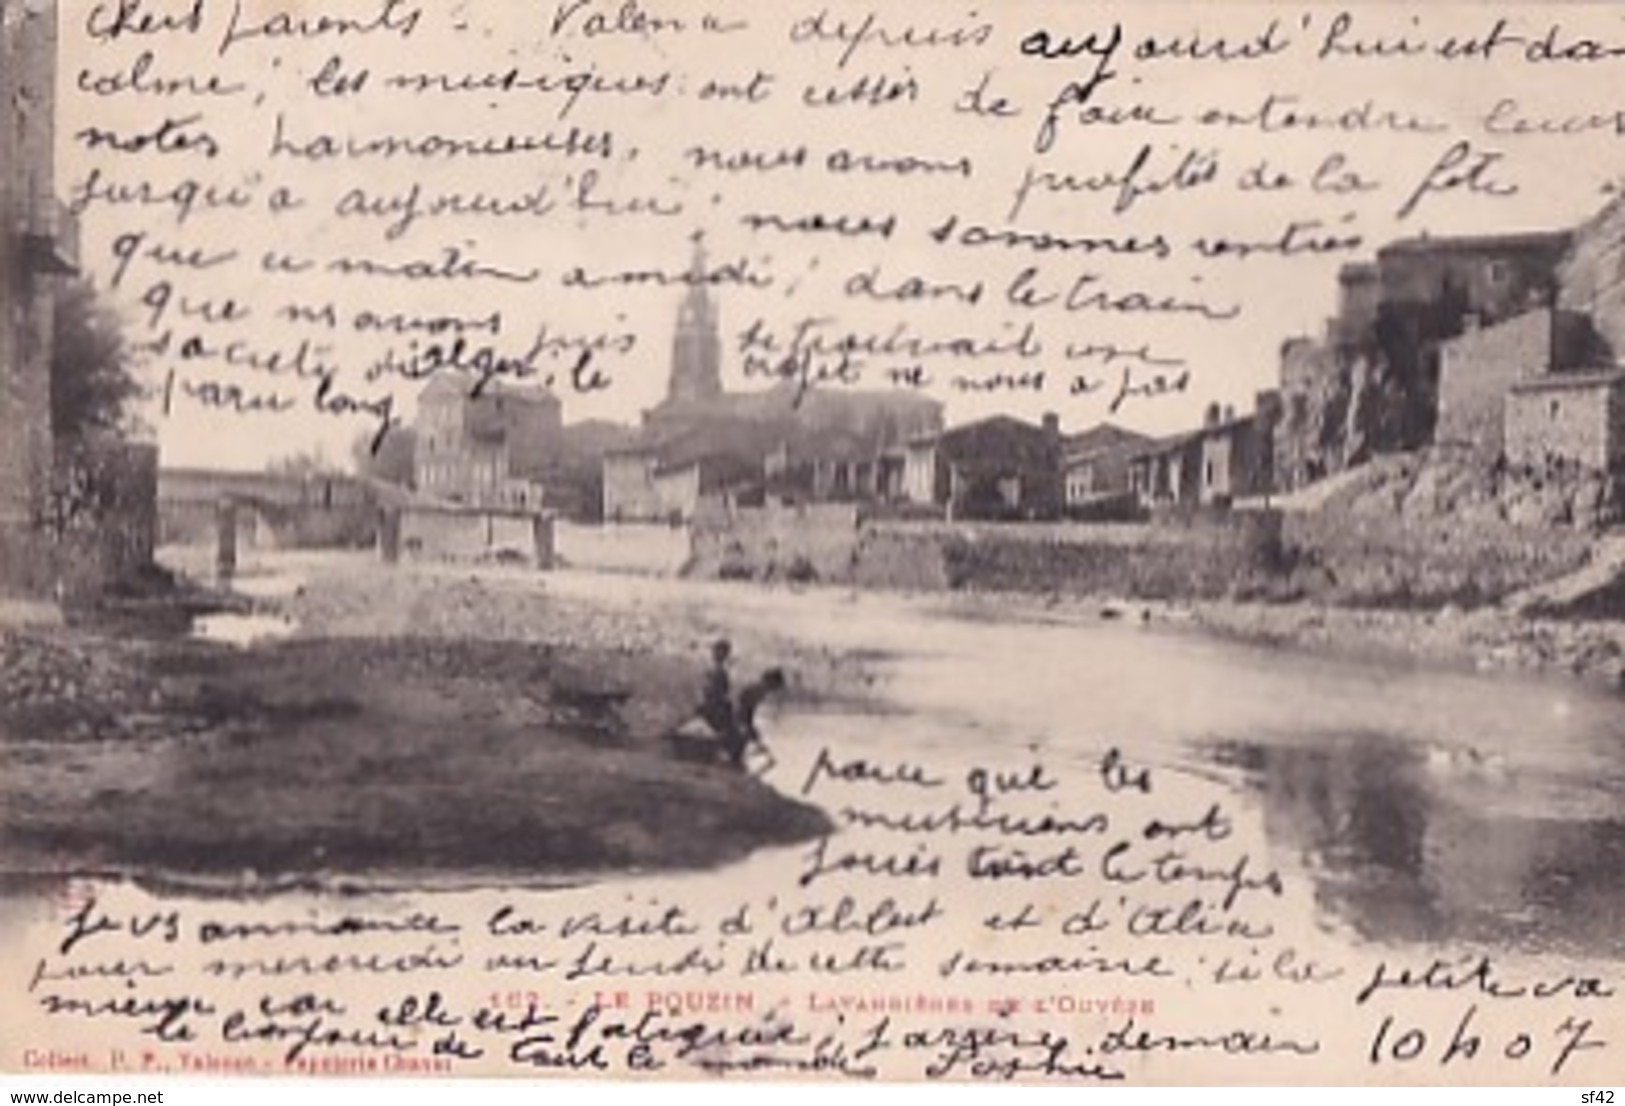 chers parents : Valence depuis aujourd'hui est da
calme ; les musiques ont cesser de faire entendre leurs
notes harmonieuses, nous avons profités de la fête
jusqu'à aujourd'hui ; nous sommes rentrés
que ce matin a midi ; dans le train
que ns avons pris se trouvait une
société d'alger, le trajet ne nous a pas
paru long
parce que les
musiciens ont
joués tout le temps
je vs annonce la visite d'Albert et d'Alice
pour mercredi ou jeudi de cette semaine, si la petite va
mieux car elle est fatiguée ; j'arrive demain 10 h 07
le bonjour de tout le monde Sophie
162. - LE POUZIN - LAVANDIÈRES DE L'OUVÈZE
Collect. D. F., Valence - Papeterie
www.delcampe.net
sf42